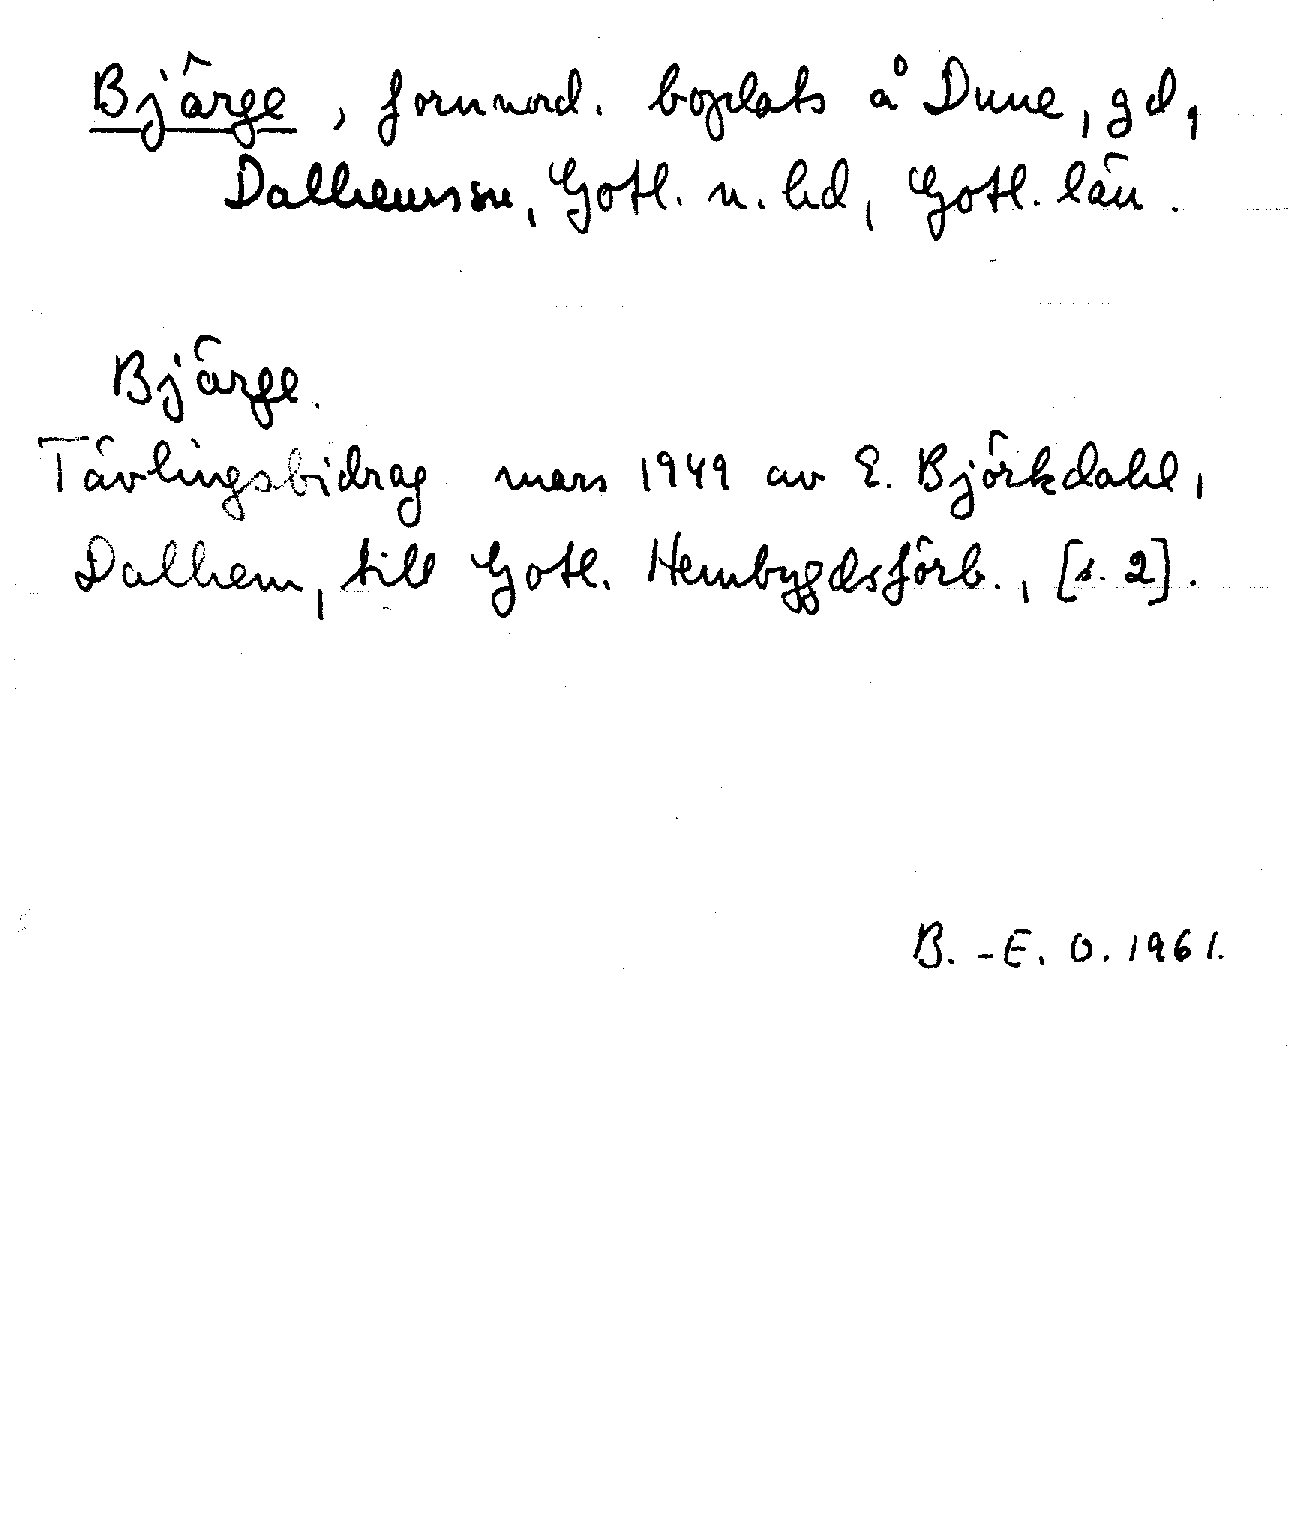 Bjärge, fornnord. boplats å Dune, gd,
Dalhems sn, Gotl. n. hd, Gotl. län.
Bjärge.
Tävlingsbidrag mars 1949 av E. Björkdahl,
Dalhem, till Gotl. Hembygdsförb., [s. 2].
B.-E. O. 1961.